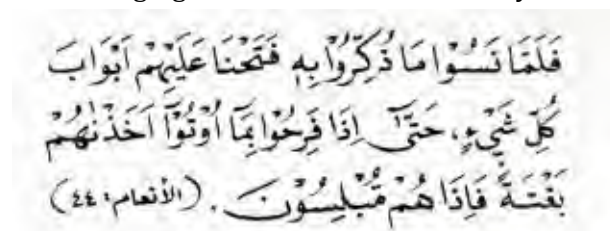 فَلَمَّا نَسُوْا مَا ذُكِّرُوْا بِهٖ فَتَحْنَا عَلَيْهِمْ اَبْوَابَ
كُلِّ شَيْءٍ، حَتّٰىٓ اِذَا فَرِحُوْا بِمَآ اُوْتُوْٓا اَخَذْنٰهُمْ
بَغْتَةً فَاِذَا هُمْ مُّبْلِسُوْنَ. (الأنعام: ٤٤)